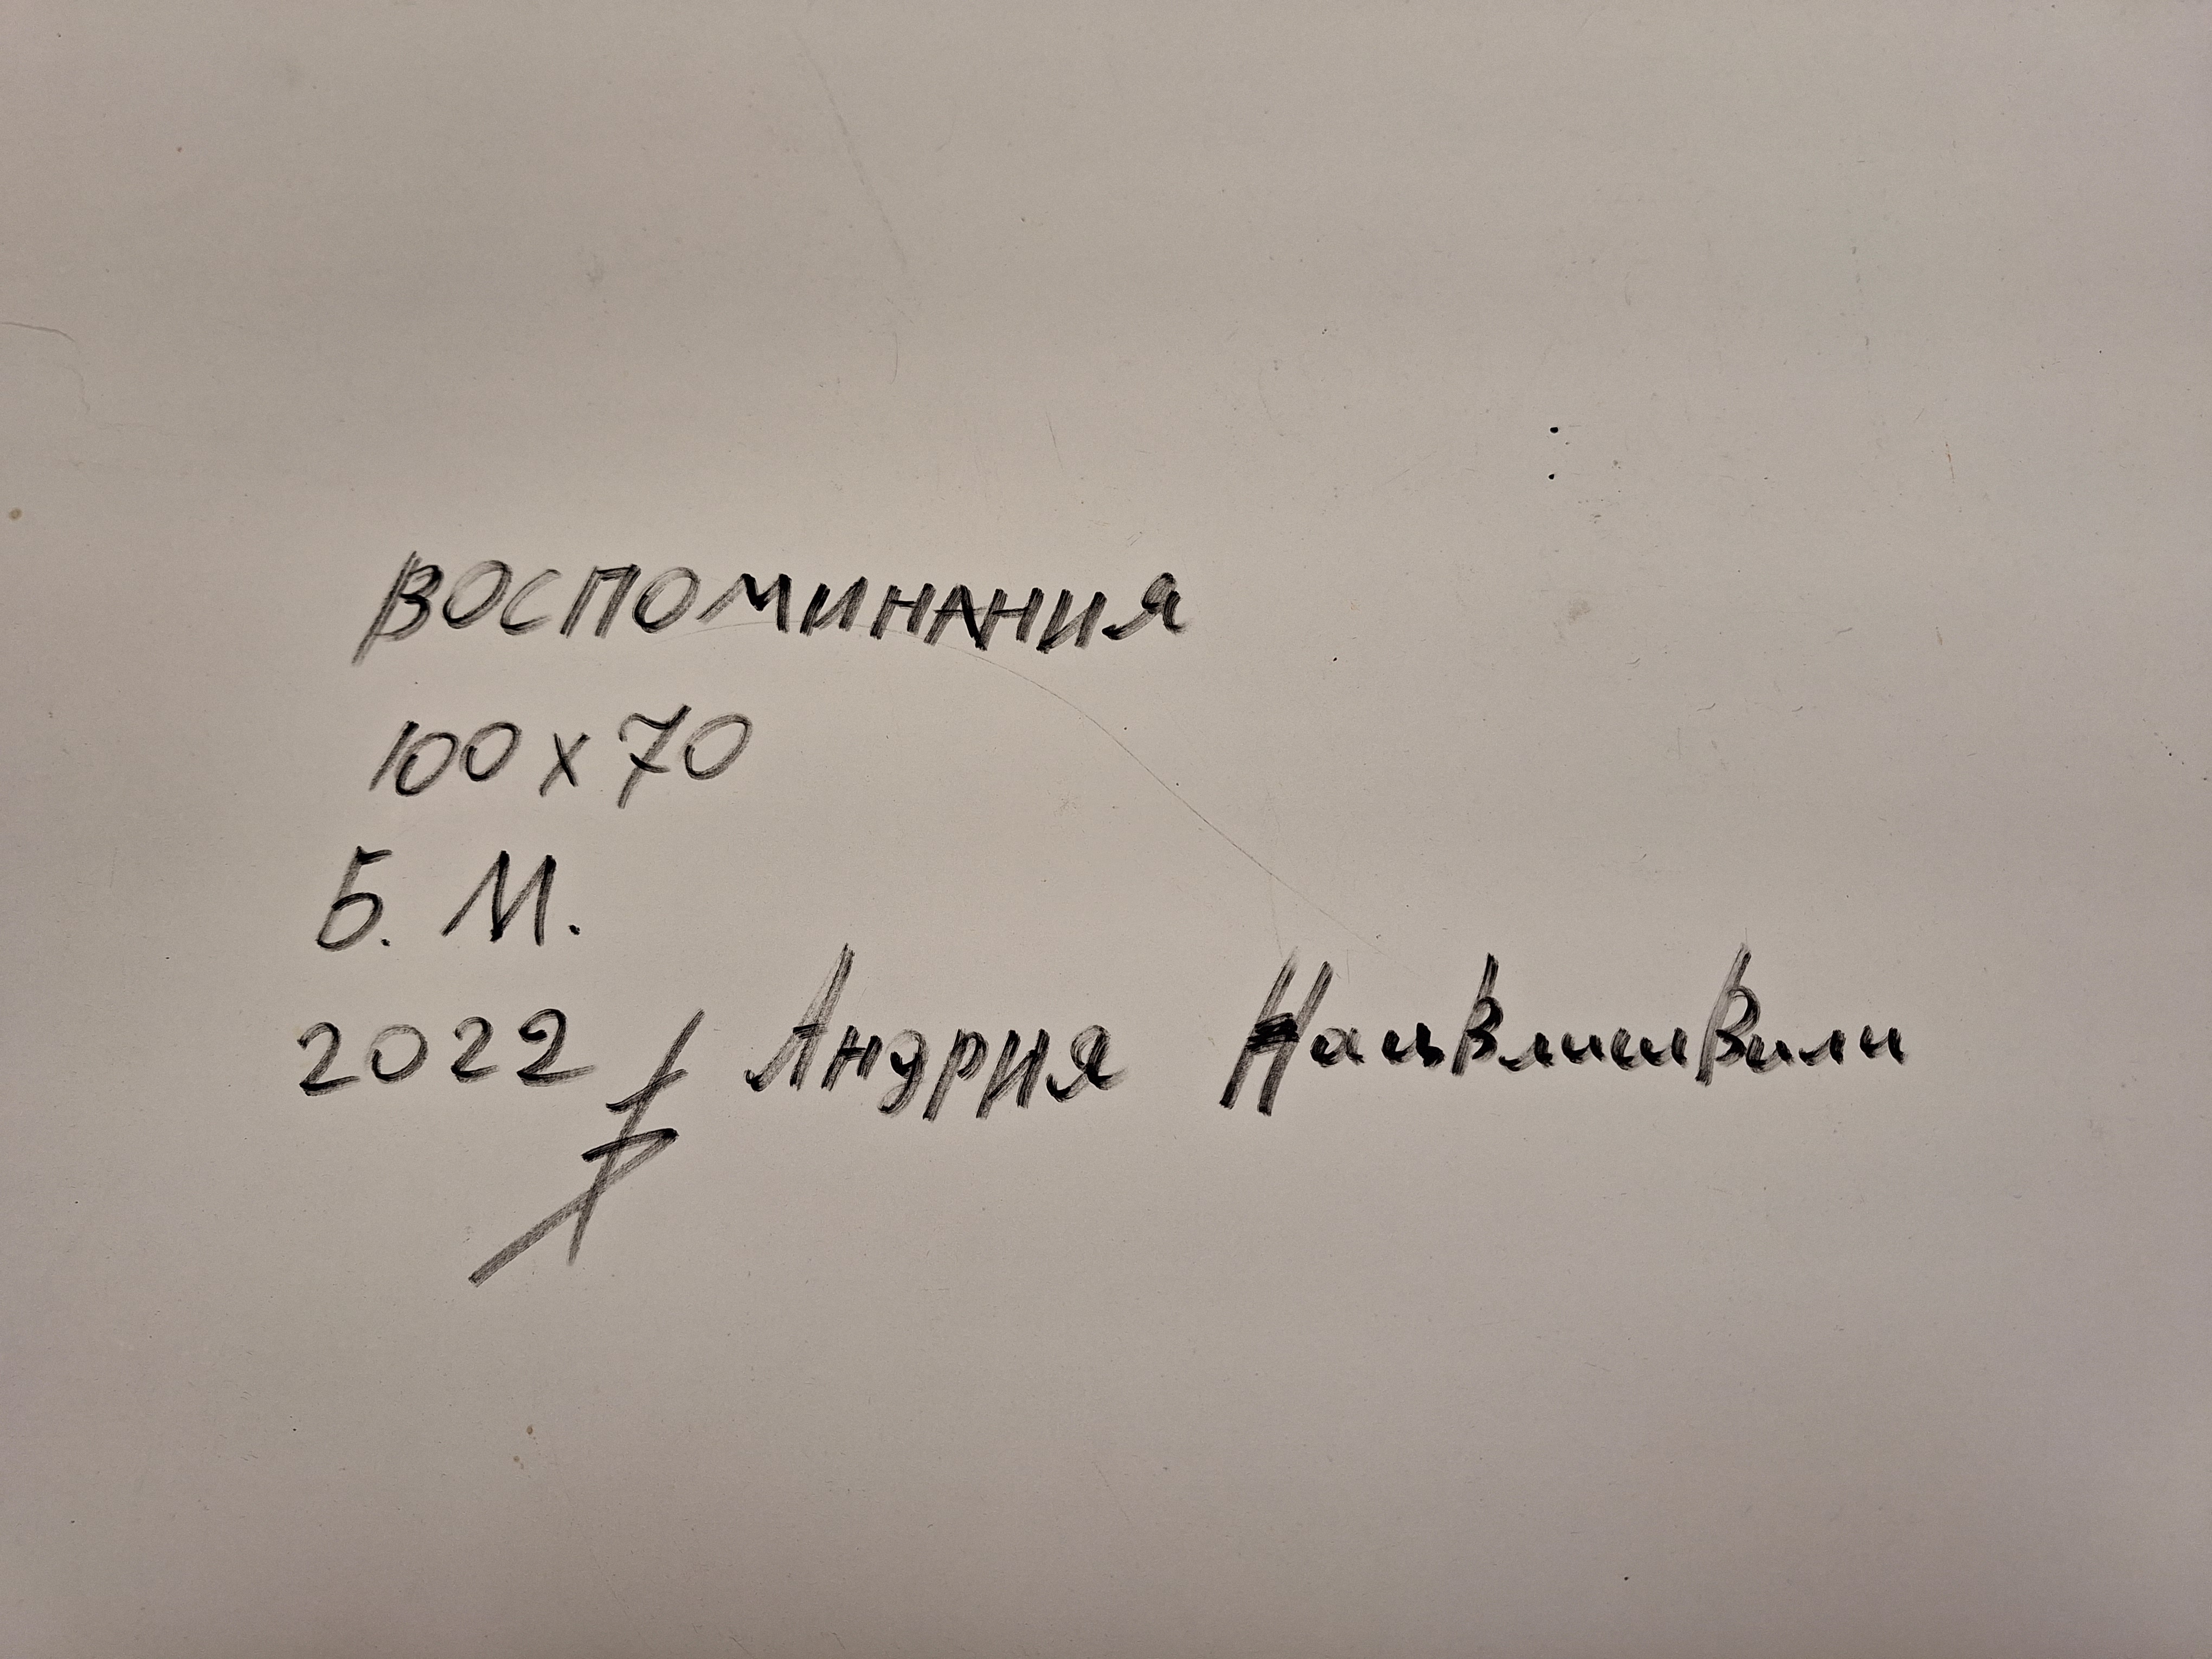 Воспоминания
100 x 70
Б. М.
2022 Андрия